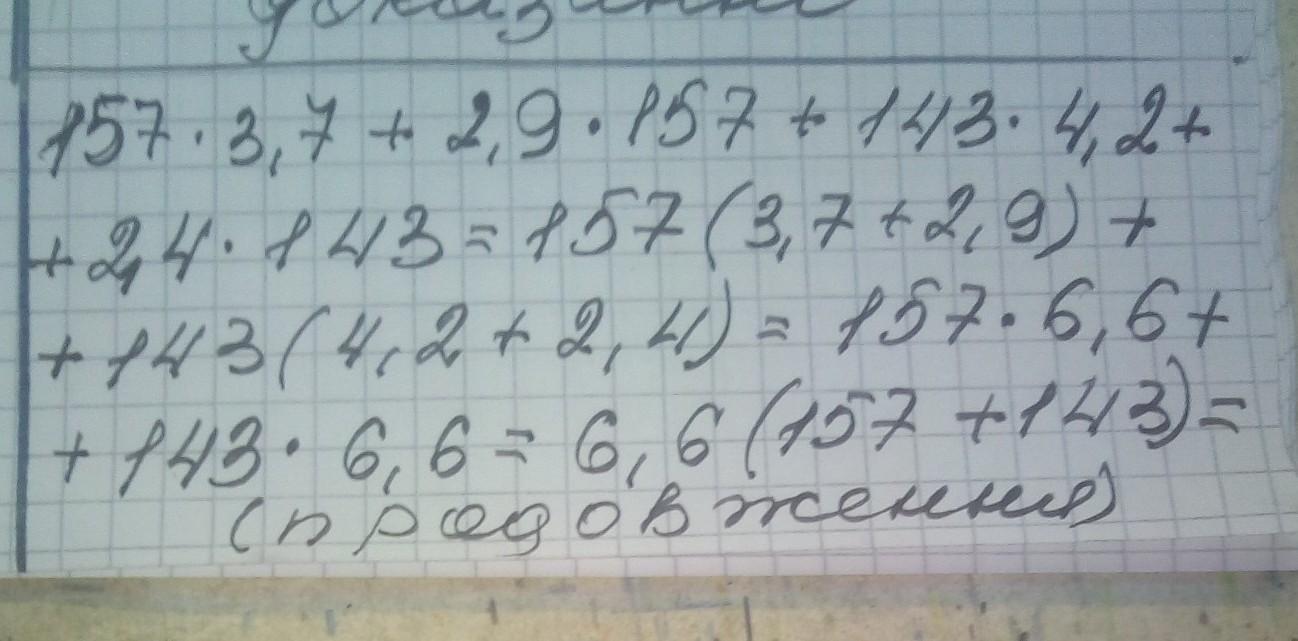 157 · 3,7 + 2,9 · 157 + 143 · 4,2 +
+ 2,4 · 143 = 157 (3,7 + 2,9) +
+ 143 (4,2 + 2,4) = 157 · 6,6 +
+ 143 · 6,6 = 6,6 (157 + 143) =
(продовження)